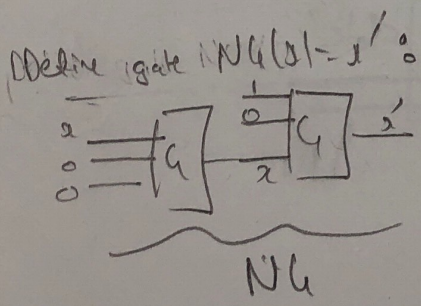 Define gate NG(x) = x' :
1
x 0 G x'
0 G
0 x
NG